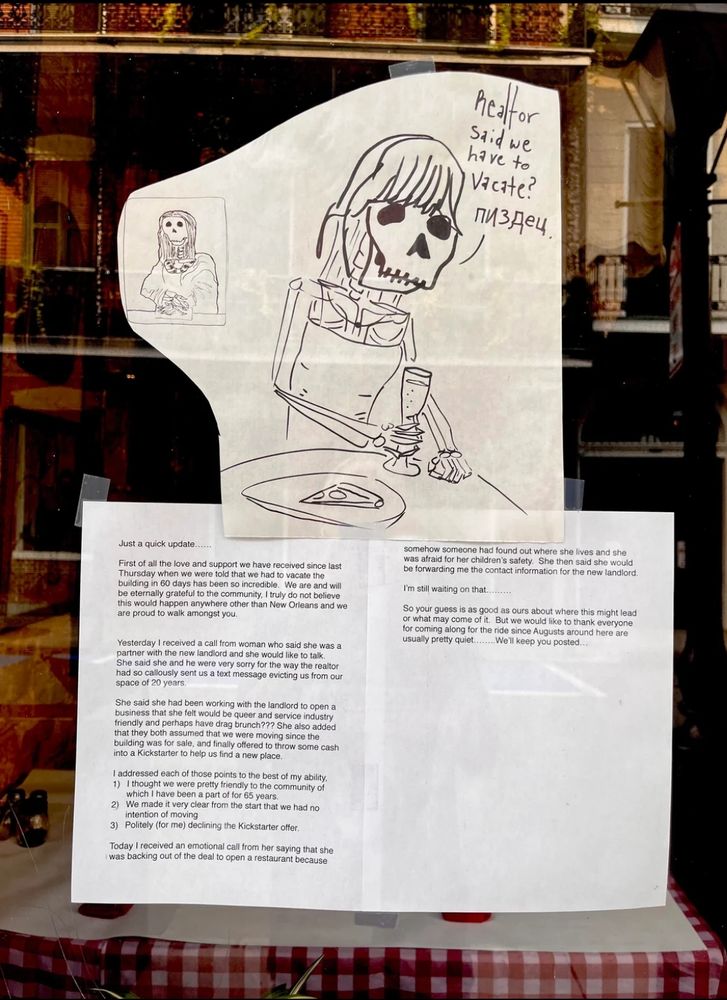 Realtor
said we
have to
vacate?
пиздец.
Just a quick update......
First of all the love and support we have received since last
Thursday when we were told that we had to vacate the
building in 60 days has been so incredible.  We are and will
be eternally grateful to the community, I truly do not believe
this would happen anywhere other than New Orleans and we
are proud to walk amongst you.
Yesterday I received a call from woman who said she was a
partner with the new landlord and she would like to talk.
She said she and he were very sorry for the way the realtor
had so callously sent us a text message evicting us from our
space of 20 years.
She said she had been working with the landlord to open a
business that she felt would be queer and service industry
friendly and perhaps have drag brunch??? She also added
that they both assumed that we were moving since the
building was for sale, and finally offered to throw some cash
into a Kickstarter to help us find a new place.
I addressed each of those points to the best of my ability,
1) I thought we were pretty friendly to the community of
which I have been a part of for 65 years.
2) We made it very clear from the start that we had no
intention of moving
3) Politely (for me) declining the Kickstarter offer.
Today I received an emotional call from her saying that she
was backing out of the deal to open a restaurant because
somehow someone had found out where she lives and she
was afraid for her children's safety.  She then said she would
be forwarding me the contact information for the new landlord.
I'm still waiting on that.........
So your guess is as good as ours about where this might lead
or what may come of it.  But we would like to thank everyone
for coming along for the ride since Augusts around here are
usually pretty quiet........We'll keep you posted...